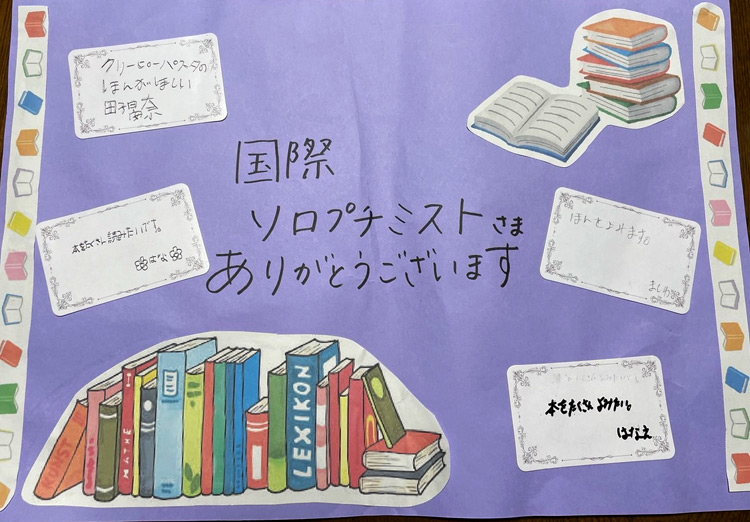 クリーピーパスタの
ほんがほしい
国際
ソロプチミストさま
ありがとうございます
本をたくさん読みたいです。
はな
ほんをよみます。
本をたくさんよみたい
はなえ
KUNST
LEXIKON